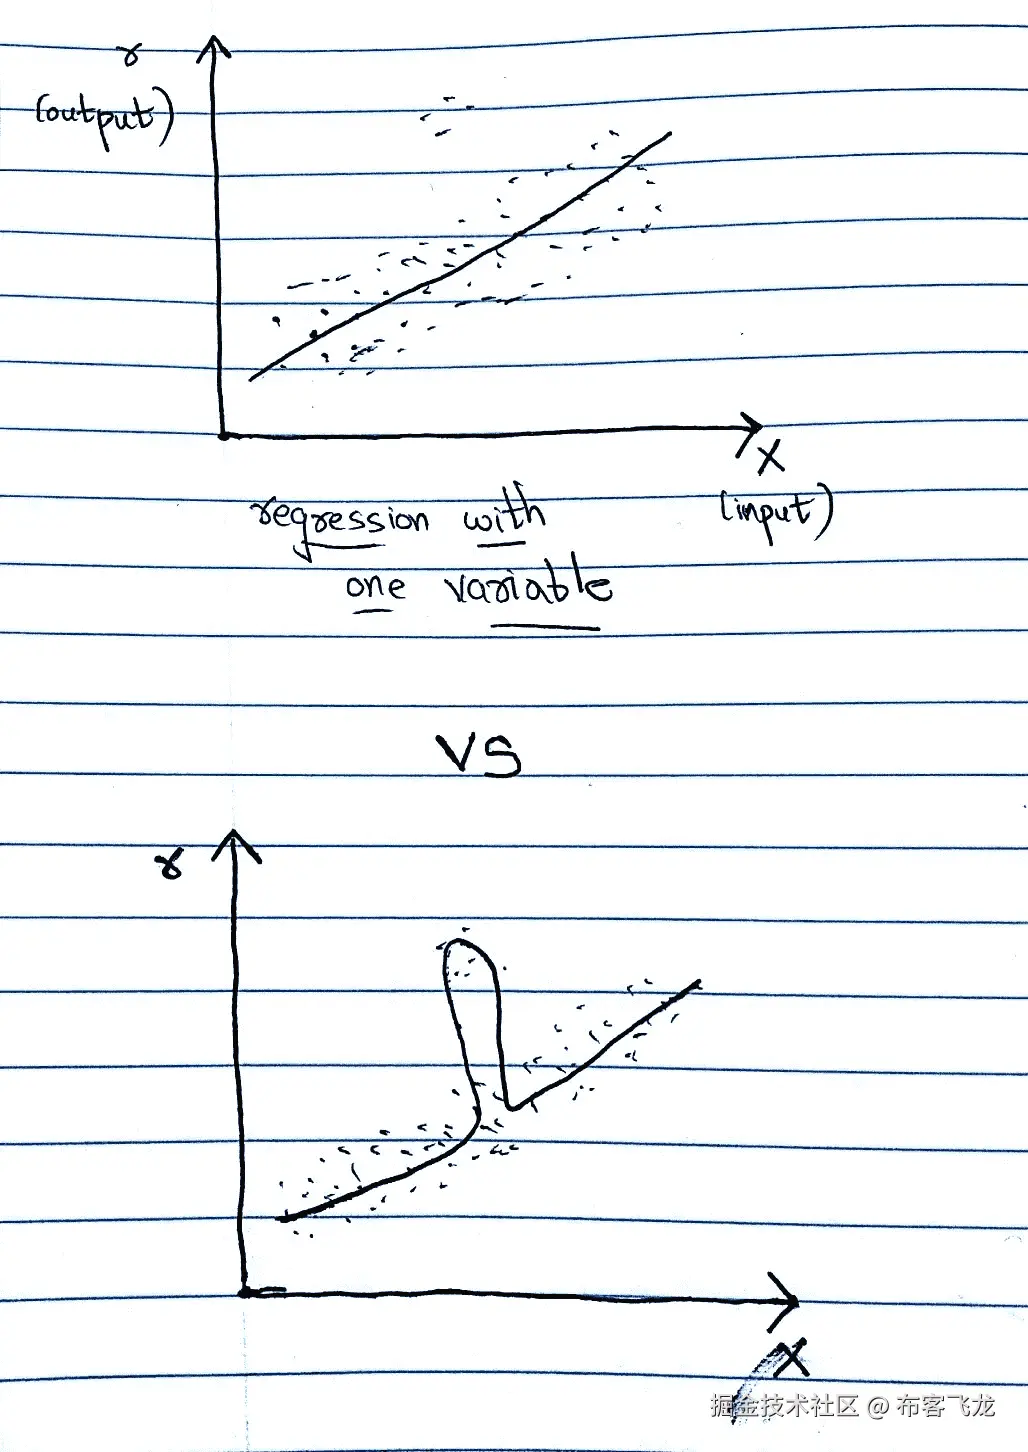 r
(output)
X
(input)
regression with
one variable
VS
r
X
掘金技术社区 @ 布客飞龙